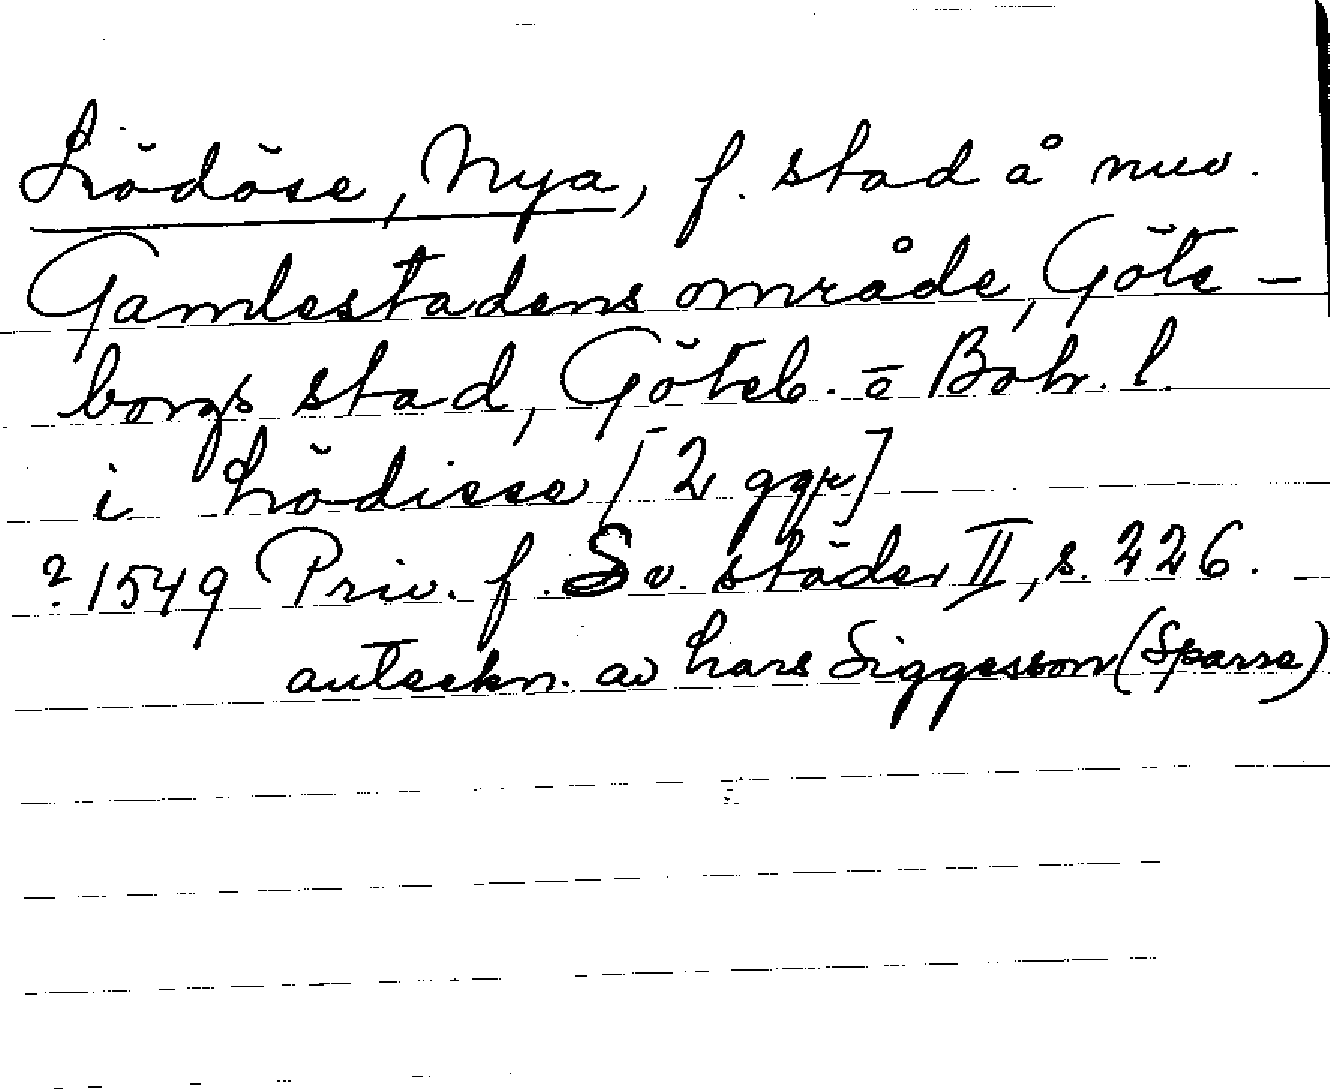 Lödöse, Nya, f. stad å nuv.
Gamlestadens område, Göte-
borgs stad, Göteb. o Boh. l.
i Lödisse [2 ggr]
? 1549 Priv. f. Sv. städer II, s. 226.
anteckn. av Lars Siggesson (Sparre)